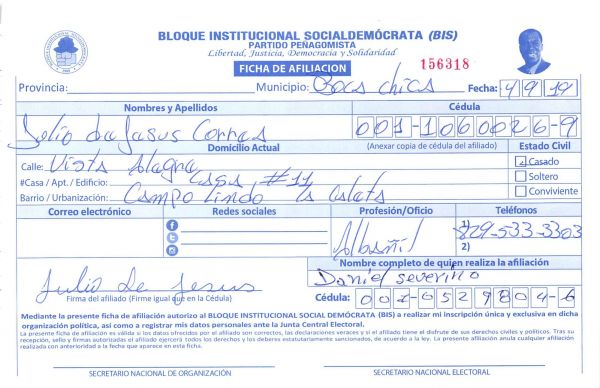 BLOQUE INSTITUCIONAL SOCIALDEMÓCRATA (BIS)
PARTIDO PEÑAGOMISTA
Libertad, Justicia, Democracia y Solidaridad
FICHA DE AFILIACION
156318
Provincia: Municipio: Boca chica Fecha: 4/9/19
Nombres y Apellidos Cédula
Julio De Jesus 001-1060026-9
Domicilio Actual (Anexar copia de cédula del afiliado) Estado Civil
Calle: Vista Alegre Casado
#Casa / Apt. / Edificio: Casa #11 Soltero
Barrio / Urbanización: Campo Lindo la Caleta Conviviente
Correo electrónico Redes sociales Profesión/Oficio Teléfonos
Albañil 1) 829-533-3303
2)
Nombre completo de quien realiza la afiliación
Julio de Jesus Daniel Severino
Firma del afiliado (Firme igual que en la Cédula) Cédula: 001-0529804-6
Mediante la presente ficha de afiliación autorizo al BLOQUE INSTITUCIONAL SOCIAL DEMÓCRATA (BIS) a realizar mi inscripción única y exclusiva en dicha
organización política, así como a registrar mis datos personales ante la Junta Central Electoral.
La presente ficha de afiliación es válida si los datos ofrecidos por el afiliado son correctos, las declaraciones veraces y si el afiliado tiene el disfrute de sus derechos civiles y políticos. Tras su
recepción, sello y firmas autorizadas el afiliado ejercerá todos los derechos y los deberes estatutariamente sancionados, de acuerdo a la ley. La presente afiliación anula cualquier afiliación
realizada con anterioridad a la fecha que aparece en esta ficha.
SECRETARIO NACIONAL DE ORGANIZACIÓN SECRETARIO NACIONAL ELECTORAL